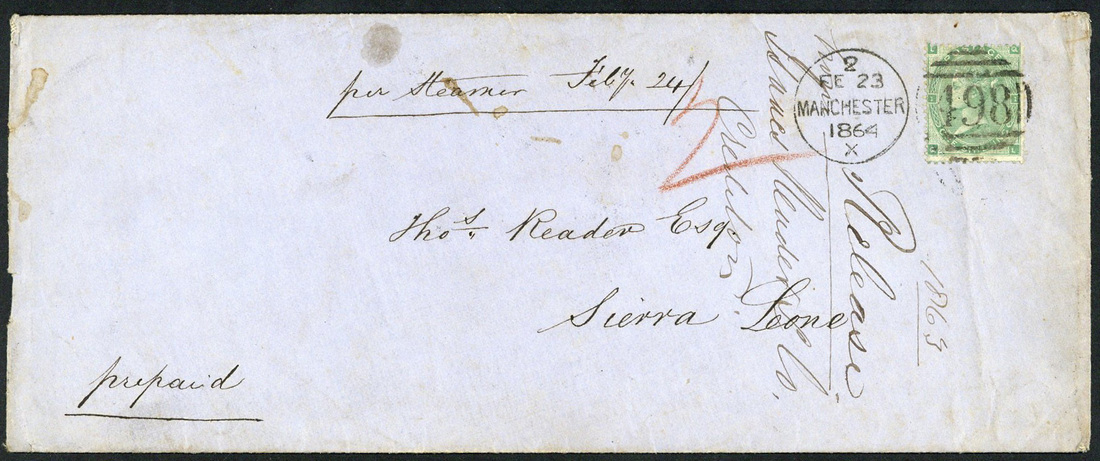 per Steamer Feby. 24/
2
FE 23
MANCHESTER
1864
X
498
Thos. Reader Esqr
Sierra Leone
prepaid
Release
1863
&Co.
Creditors